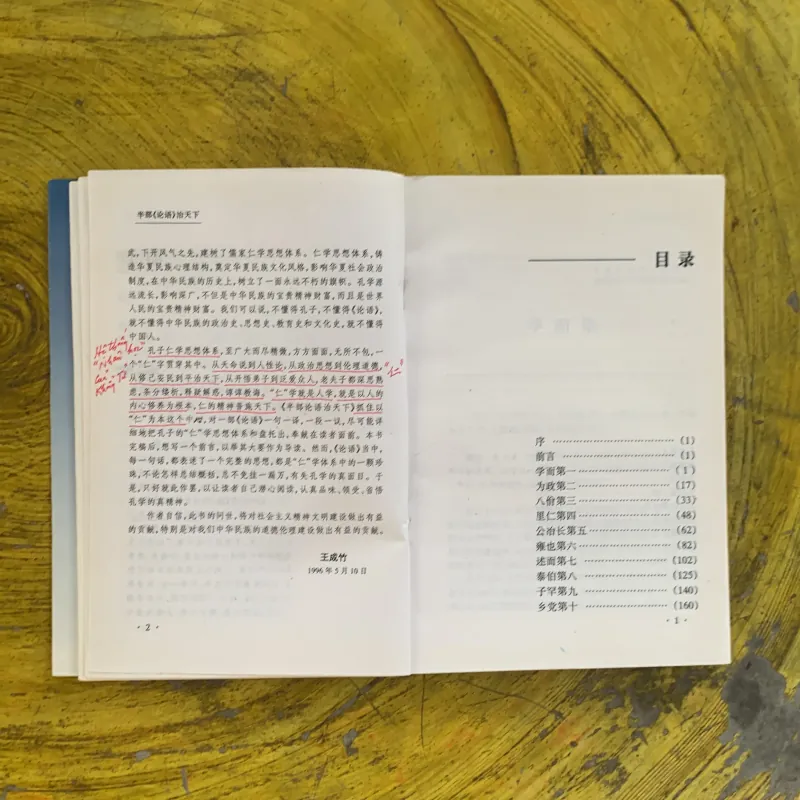 半部《论语》治天下
此，下开风气之先，建树了儒家仁学思想体系。仁学思想体系，铸
造华夏民族心理结构，奠定华夏民族文化风格，影响华夏社会政治
制度，在中华民族的历史上，树立了一面永远不朽的旗帜。孔学源
远流长，影响深广，不但是中华民族的宝贵精神财富，而且是世界人
民的宝贵精神财富。我们可以说，不懂得孔子，不懂得《论语》，
就不懂得中华民族的政治史、思想史、教育史和文化史，就不懂得
中国人。
孔子仁学思想体系，至广大而尽精微，方方面面，无所不包，一
个“仁”字贯穿其中。从天命说到人性论，从政治思想到伦理道德，
从修己安民到平治天下，从开悟弟子到泛爱众人，老夫子都深思熟
虑，条分缕析，释疑解惑，谆谆教诲。“仁”学就是人学，就是以人的
内心修养为根本，仁的精神普施天下。《半部论语治天下》抓住以
“仁”为本这个中心，对一部《论语》一句一译，一段一议，尽可能详
细地把孔子的“仁”学思想体系和盘托出，奉献在读者面前。本书
完稿后，想写一个前言，以举其大要作为导读。然而，《论语》当中，
每一句话，都表述了一个完整的思想，都是“仁”学体系中的一颗珍
珠，不论怎样总结概括，总不免挂一漏万，有失孔学的真面目。于
是，只好就此作罢，以让读者自己潜心阅读，认真品味、领受、省悟
孔学的真精神。
作者自信，此书的问世，将对社会主义精神文明建设做出有益
的贡献，特别是对我们中华民族的道德伦理建设做出有益的贡献。
王成竹
1996年5月10日
·2·
"仁"
目录
序 ………………………… (1)
前言 ………………………… (1)
学而第一 ………………………… (1)
为政第二 ………………………… (17)
八佾第三 ………………………… (33)
里仁第四 ………………………… (48)
公冶长第五 ………………………… (62)
雍也第六 ………………………… (82)
述而第七 ………………………… (102)
泰伯第八 ………………………… (125)
子罕第九 ………………………… (140)
乡党第十 ………………………… (160)
·1·